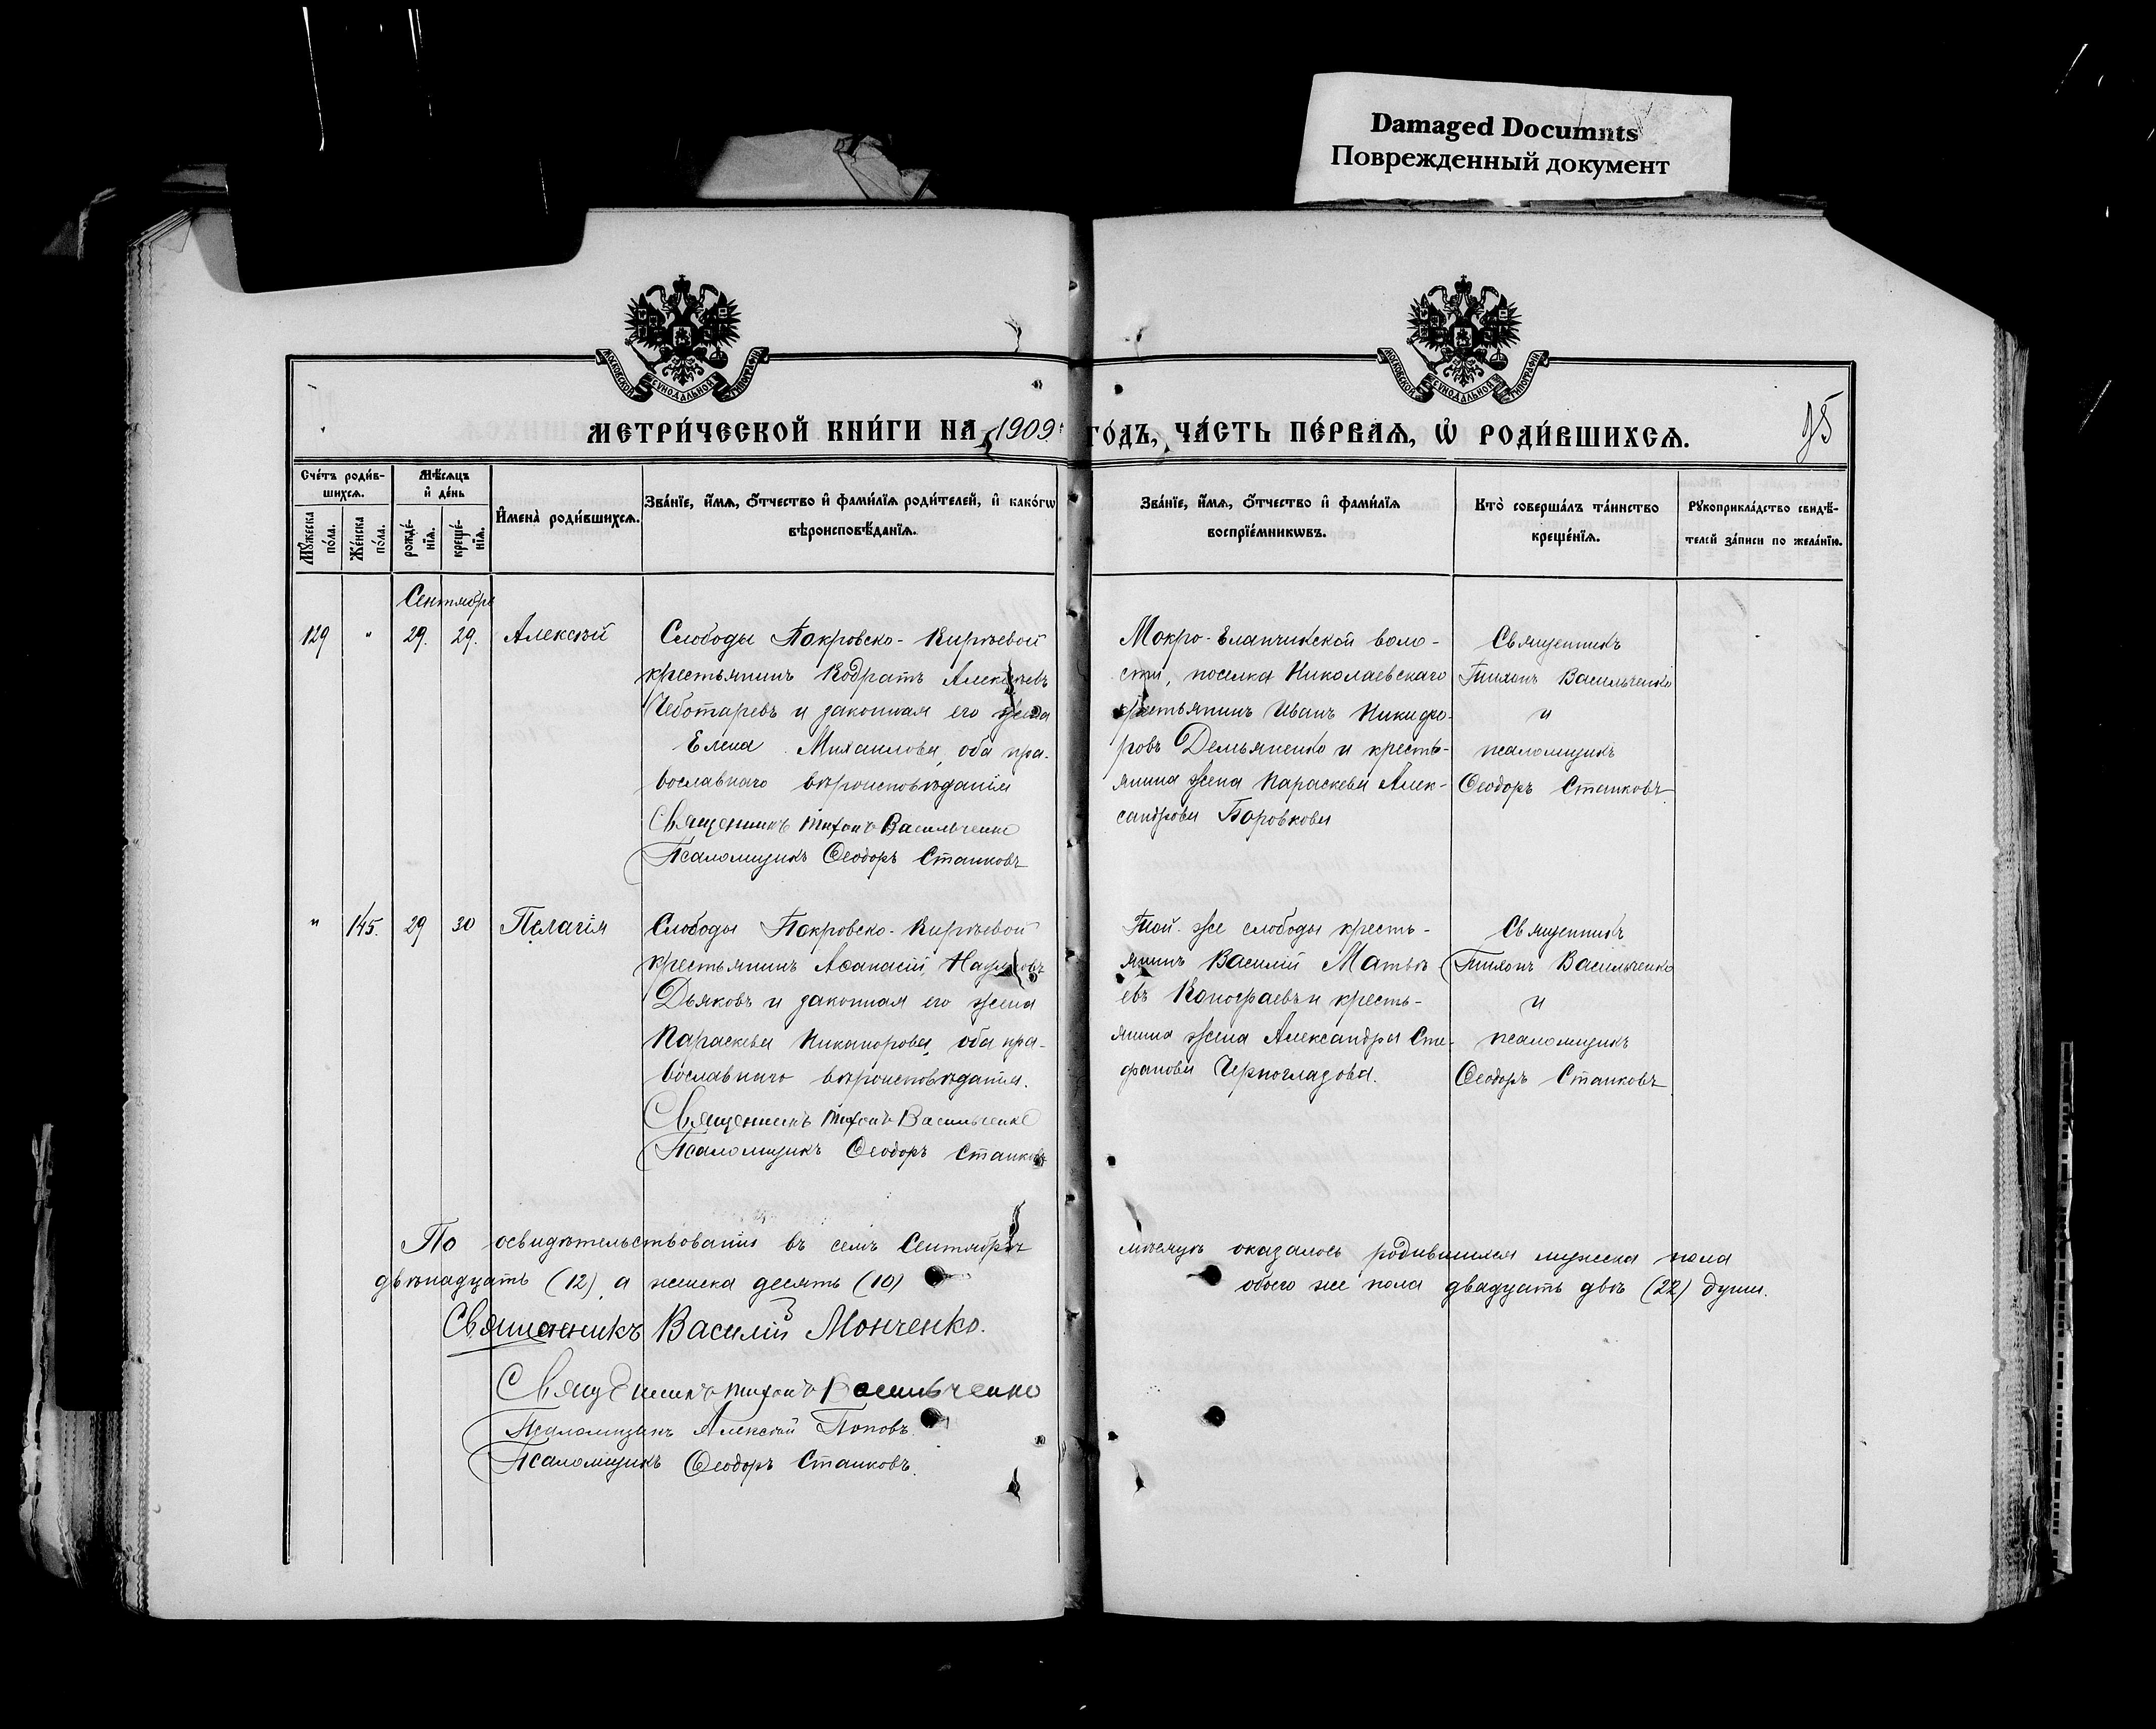 Damaged Documnts
Поврежденный документ
МОСКОВСКОЙ СѴНОДАЛЬНОЙ ТИПОГРАФІИ
МОСКОВСКОЙ СѴНОДАЛЬНОЙ ТИПОГРАФІИ
МЕТРИ́ЧЕСКОЙ КНИ́ГИ НА 1909 ГО́ДЪ, ЧА́СТЬ ПЕ́РВАѦ, Ѡ҆ РОДИ́ВШИХСѦ.
95
Сче́тъ роди́в-
шихсѧ.
Мѣ́сѧцъ
и҆ де́нь
Мꙋ́жеска
по́ла.
Же́нска
по́ла.
рожде́-
нїѧ.
креще́-
нїѧ.
И҆мена̀ роди́вшихсѧ.
Зва́нїе, и҆́мѧ, ѻ҆́тчество и҆ фами́лїѧ роди́телей, и҆ како́гѡ
вѣроисповѣ́данїѧ.
Зва́нїе, и҆́мѧ, ѻ҆́тчество и҆ фами́лїѧ
воспрїе́мникѡвъ.
Кто̀ соверша́лъ та́инство
креще́нїѧ.
Рꙋкоприкла́дство свидѣ́-
телей за́писи по жела́нїю.
Сентябрь
129 " 29. 29. Алексѣй
Слободы Покровско-Кирѣевой
крестьянинъ Кодратъ Алексѣевъ
Чеботаревъ и законная его жена
Елена Михаилова, оба пра-
вославнаго вѣроисповѣданія
Священникъ Тихонъ Васильченко
Псаломщикъ Ѳеодоръ Станковъ
Мокро-Еланчикской воло-
сти, поселка Николаевскаго
крестьянинъ Иванъ Никифо-
ровъ Демьяненко и кресть-
янина жена Параскева Алек-
сандрова Боровкова
Священникъ
Тихонъ Васильченко
и
псаломщикъ
Ѳеодоръ Станковъ
" 145. 29 30 Пелагія
Слободы Покровско-Кирѣевой
крестьянинъ Аѳанасій Наумовъ
Дьяковъ и законная его жена
Параскева Никанорова, оба пра-
вославнаго вѣроисповѣданія.
Священникъ Тихонъ Васильченко
Псаломщикъ Ѳеодоръ Станковъ
Той-же слободы кресть-
янинъ Василій Матвѣ-
евъ и кресть-
янина жена Александра Сте-
фанова Черноглазова.
Священникъ
Тихонъ Васильченко
и
псаломщикъ
Ѳеодоръ Станковъ
По освидѣтельствованіи въ семъ Сентябрѣ мѣсяцѣ оказалось родившихся мужеска пола
двѣнадцать (12), а женска десять (10) обоего же пола двадцать двѣ (22) души.
Священникъ Василій Монченко.
Священникъ Тихонъ Васильченко
Псаломщикъ Алексѣй Поповъ.
Псаломщикъ Ѳеодоръ Станковъ.